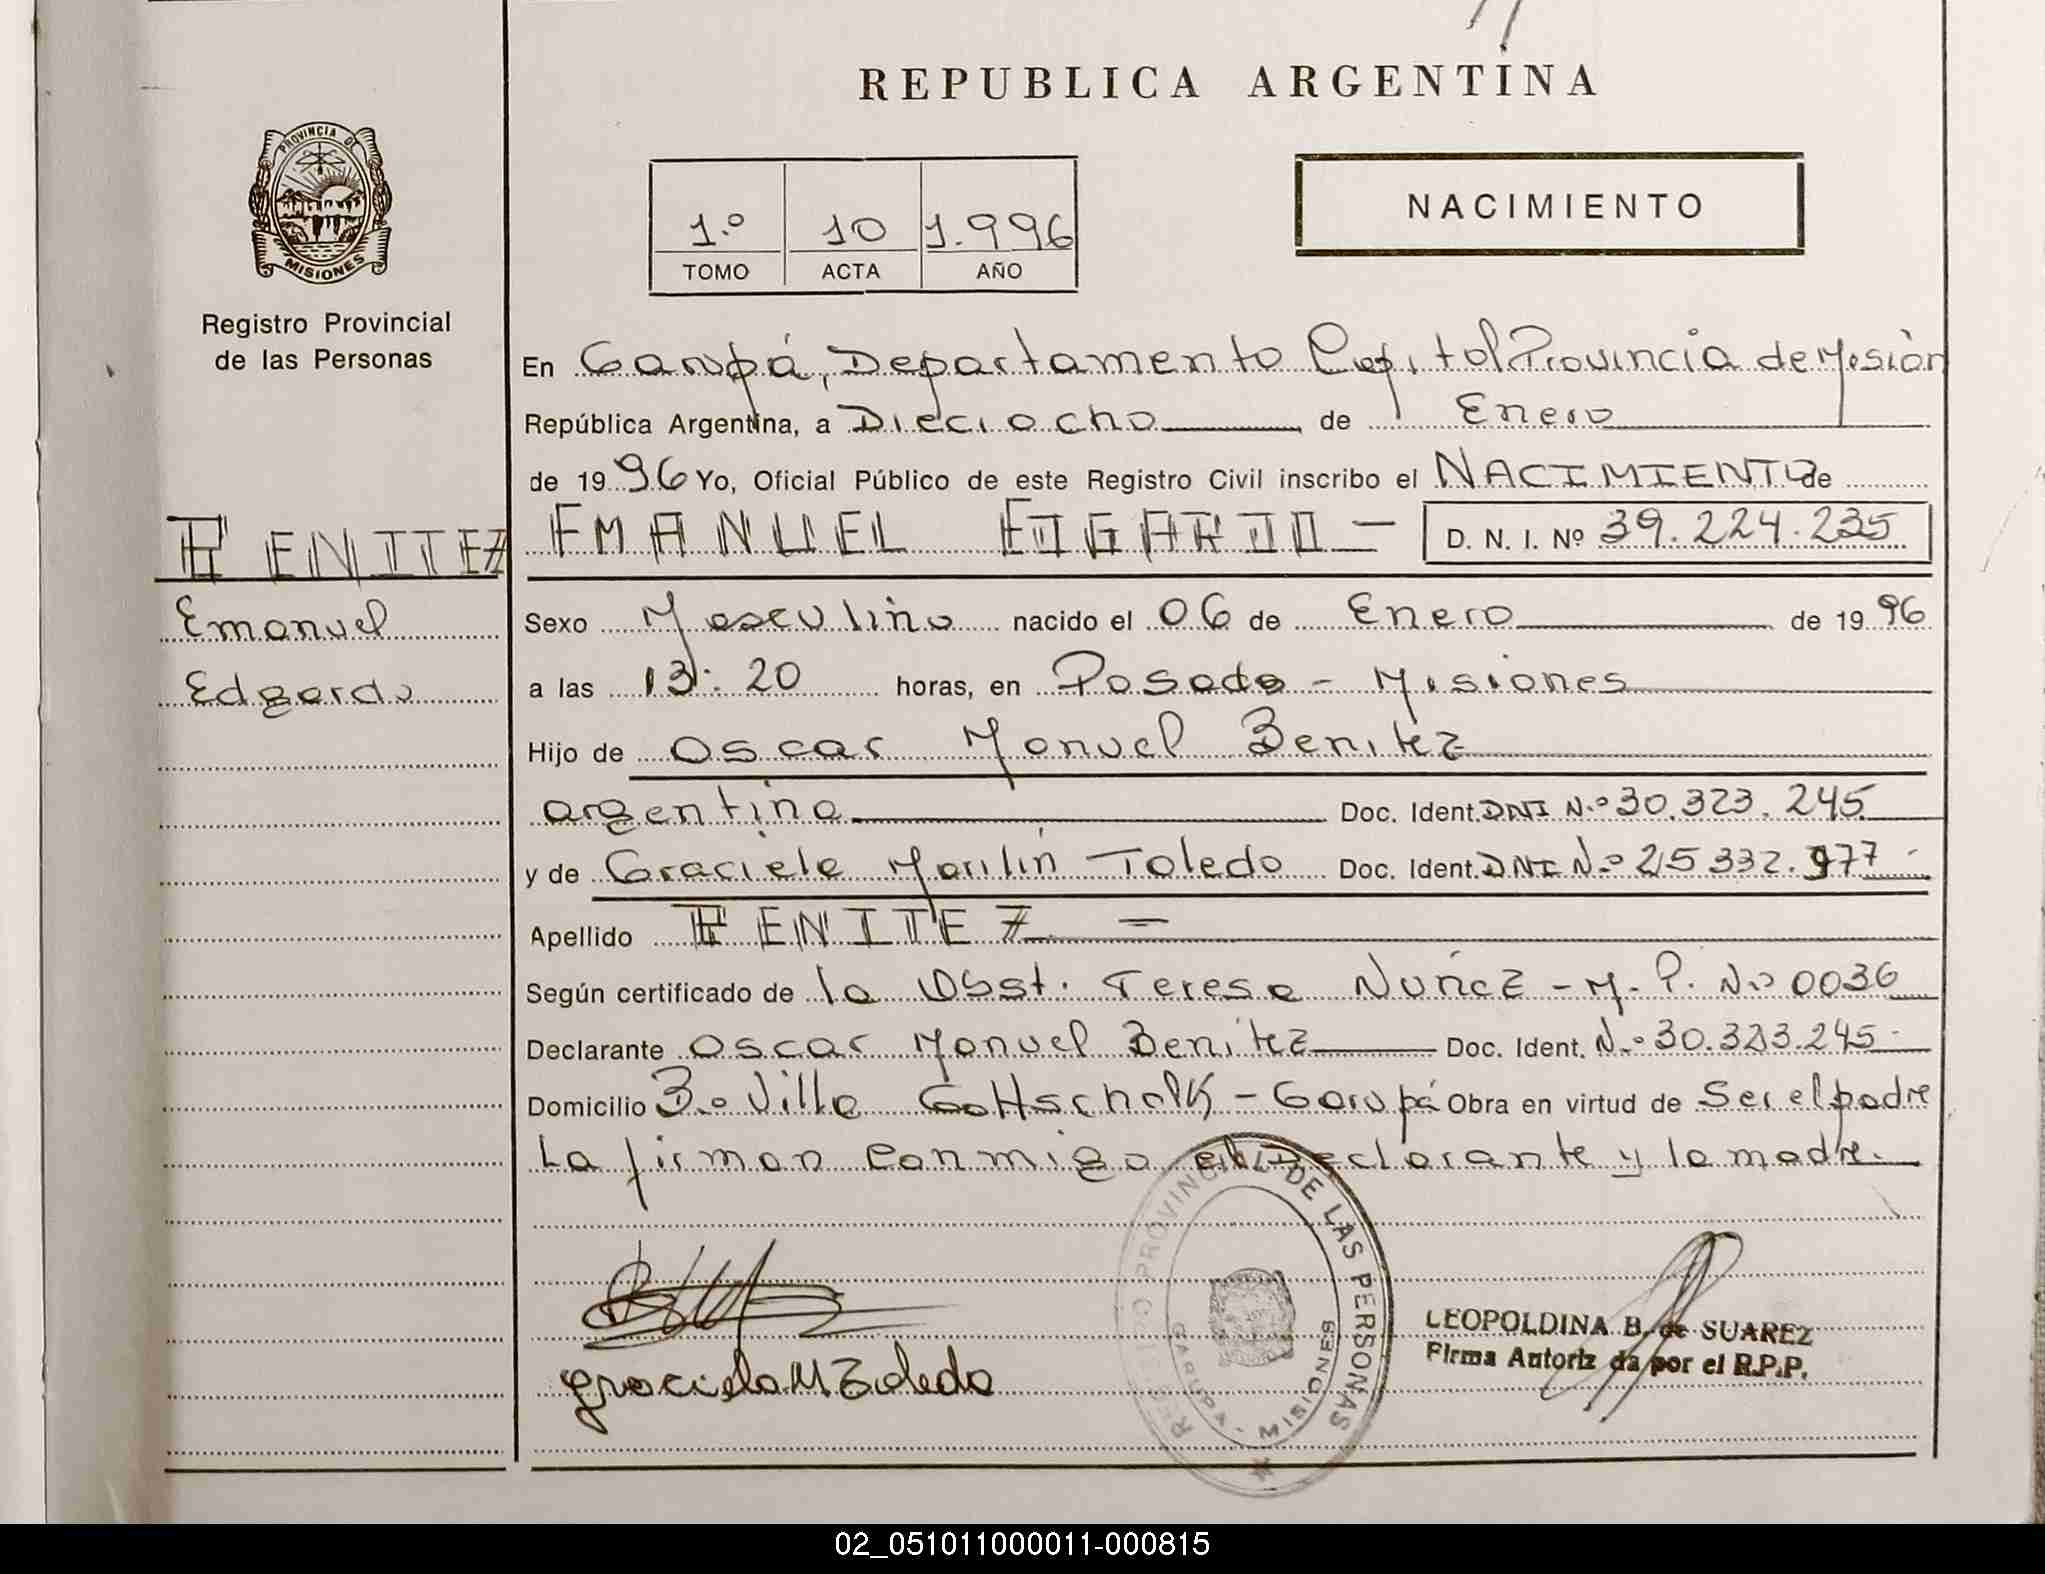 REPUBLICA ARGENTINA
PROVINCIA DE MISIONES
Registro Provincial
de las Personas
1.º 10 1.996
TOMO ACTA AÑO
NACIMIENTO
En Garupá, Departamento Capital Provincia de Mision
República Argentina, a Dieciocho de Enero
de 1996 Yo, Oficial Público de este Registro Civil inscribo el NACIMIENTO de
BENITEZ
EMANUEL EDGARDO - D. N. I. Nº 39.224.235
Emanuel
Edgardo
Sexo Masculino nacido el 06 de Enero de 1996
a las 13:20 horas, en Posadas - Misiones
Hijo de Oscar Manuel Benitez
argentina Doc. Ident. DNI N.º 30.323.245
y de Graciela Marilín Toledo Doc. Ident. DNI N.º 25 332.977-
Apellido BENITEZ -
Según certificado de la Obst. Teresa Nuñez - M. P. N.º 0036
Declarante Oscar Manuel Benitez Doc. Ident. N.º 30.323.245-
Domicilio B.º Villa Gottschalk - Garupá Obra en virtud de Ser el padre
La firman conmigo el Declarante y la madre.
REGISTRO PROVINCIAL DE LAS PERSONAS
GARUPA - MISIONES
Graciela M Toledo
LEOPOLDINA B. de SUAREZ
Firma Autoriz da por el R.P.P.
02_051011000011-000815